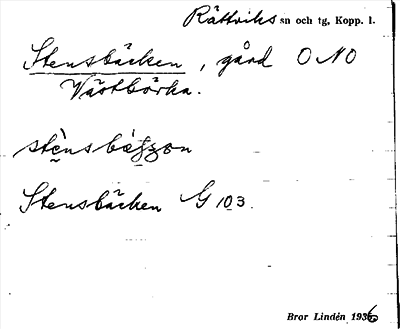 Rättviks sn och tg, Kopp. l.
Stensbäcken, gård O NO
Västbërka.
Stensbäcken G 103.
Bror Lindén 1936